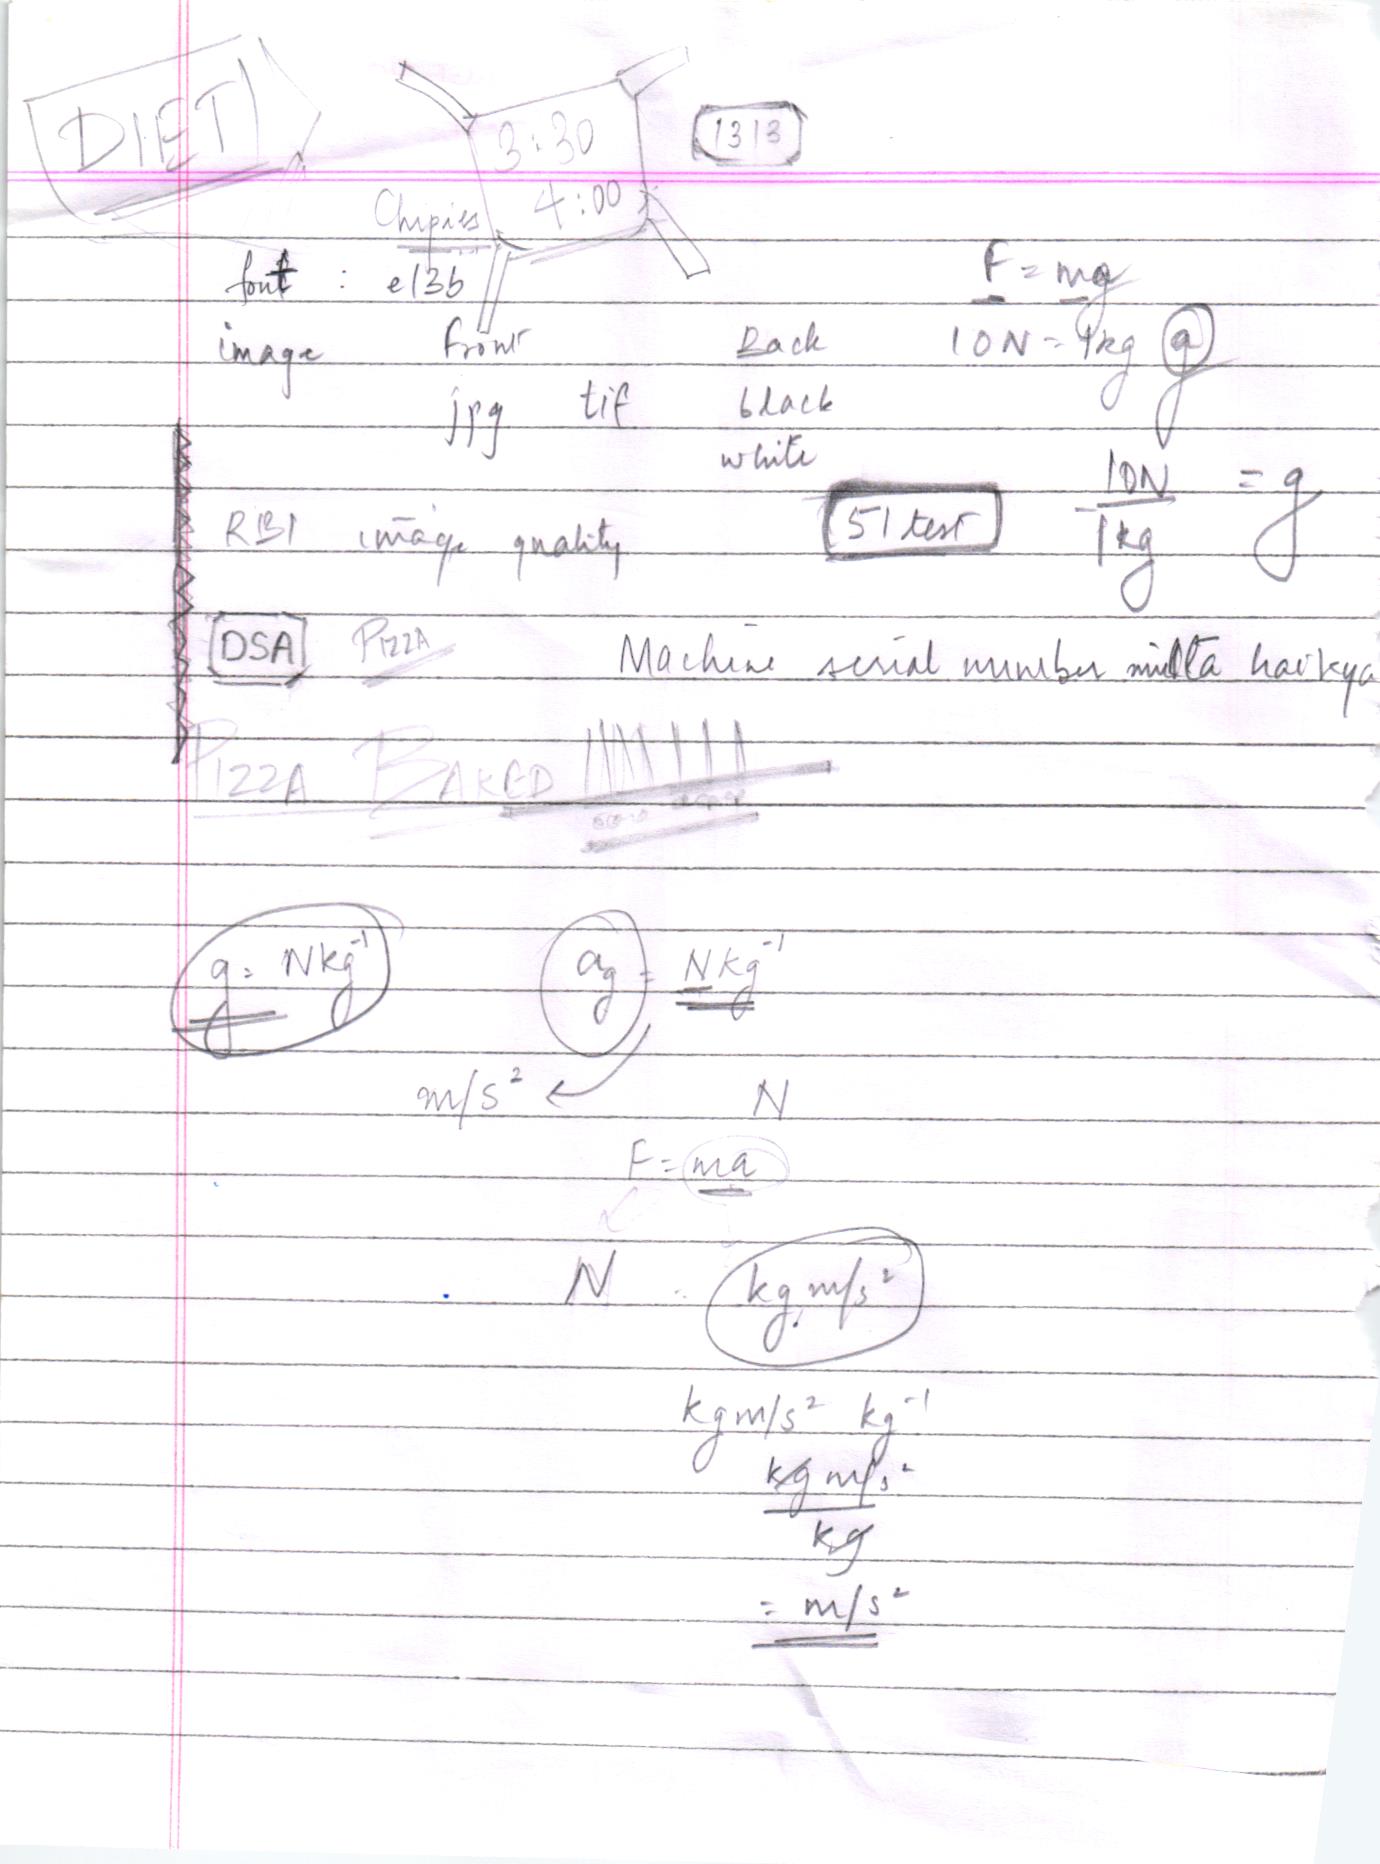 DIET
3:30
4:00
1313
Chipies
font : e13b
F = mg
image front Back 10N = 1kg g
jpg tif black
white
10N = g
1kg
RBI image quality 51 test
DSA PIZZA Machine serial number milta hai kya
PIZZA BAKED
g = Nkg⁻¹ ag = Nkg⁻¹
m/s² N
F = ma
N kg m/s²
kgm/s² kg⁻¹
kg m/s²
kg
= m/s²